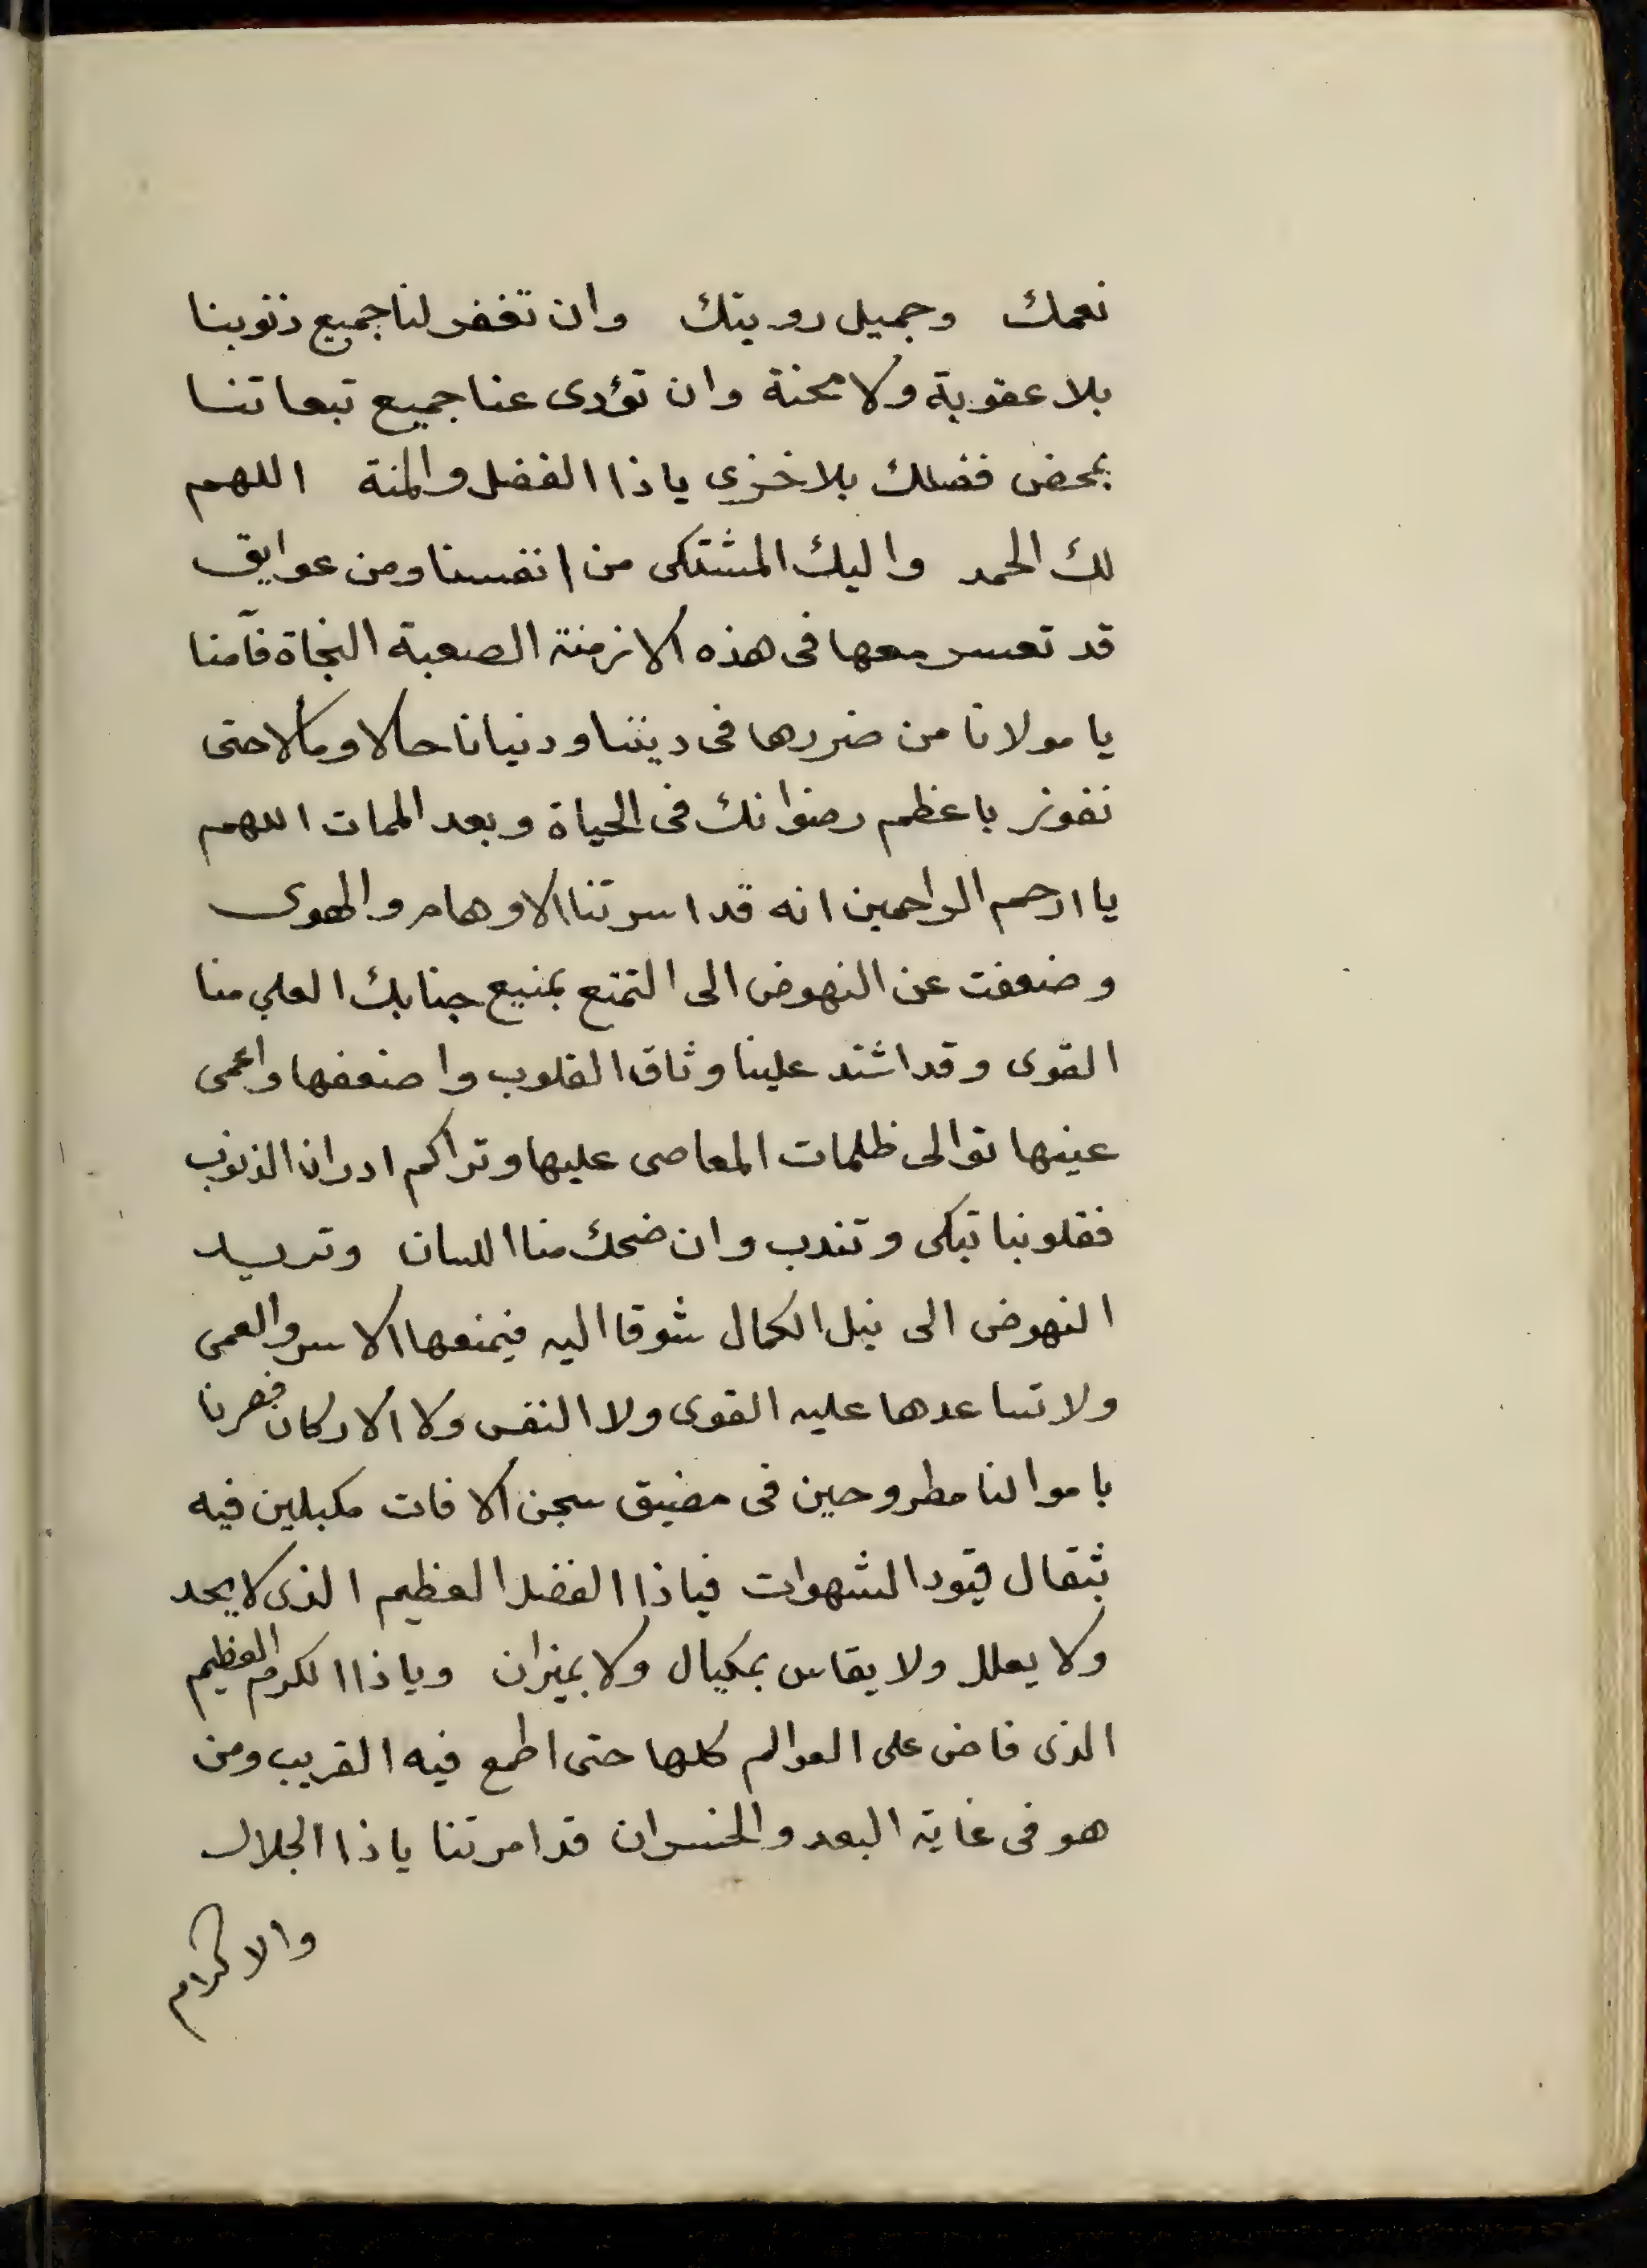 نعمك وجميل رويتك وان تغفر لنا جميع ذنوبنا
بلا عقوبة ولا محنة وان تؤدى عنا جميع تبعاتنا
بمحض فضلك بلا خزى يا ذا الفضل والمنة اللهم
لك الحمد واليك المشتكى من انفسنا ومن عوايق
قد تعسر معها فى هذه الازمنة الصعبة النجاة فآمنا
يا مولانا من ضررها فى ديننا ودنيانا حالا ومآلا حتى
نفوز باعظم رضوانك فى الحياة وبعد الممات اللهم
يا ارحم الراحمين انه قد اسرتنا الاوهام والهوى
وضعفت عن النهوض الى التمتع بمنيع جنابك العلي منا
القوى وقد اشتد علينا وثاق القلوب واضعفها واعمى
عينها توالى ظلمات المعاصى عليها وتراكم ادران الذنوب
فقلوبنا تبكى وتندب وان ضحك منا اللسان وتريد
النهوض الى نيل الكمال شوقا اليه فيمنعها الاسر والعمى
ولا تساعدها عليه القوى ولا النفس ولا الاركان فصرنا
باموالنا مطروحين فى مضيق سجن الافات مكبلين فيه
بثقال قيود الشهوات فيا ذا الفضل العظيم الذى لا يحد
ولا يعلل ولا يقاس بمكيال ولا بميزان ويا ذا الكرم العظيم
الذى فاض على العوالم كلها حتى اطمع فيه القريب ومن
هو فى غاية البعد والخسران قد امرتنا يا ذا الجلال
والاكرام